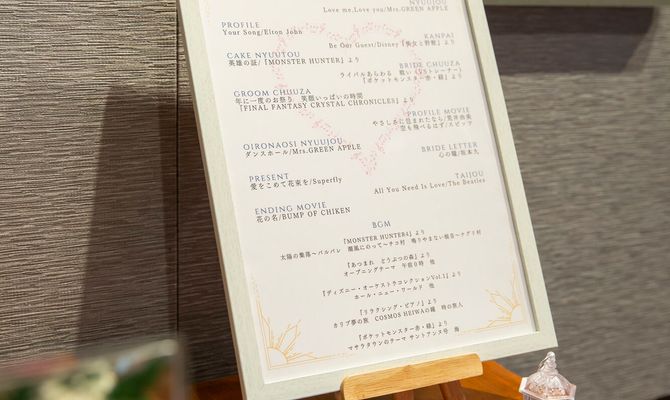 NYUUJOU
Love me, Love you/Mrs.GREEN APPLE
PROFILE
Your Song/Elton John
KANPAI
Be Our Guest/Disney『美女と野獣』より
CAKE NYUUTOU
英雄の証/「MONSTER HUNTER」より
BRIDE CHUUZA
ライバルあらわる 戦い(VSトレーナー)
『ポケットモンスター赤・緑』より
GROOM CHUUZA
年に一度のお祭り 笑顔いっぱいの時間
「FINAL FANTASY CRYSTAL CHRONICLES」より
PROFILE MOVIE
やさしさに包まれたなら/荒井由実
空も飛べるはず/スピッツ
OIRONAOSI NYUUJOU
ダンスホール/Mrs.GREEN APPLE
BRIDE LETTER
心の瞳/坂本九
PRESENT
愛をこめて花束を/Superfly
TAIJOU
All You Need Is Love/The Beatles
ENDING MOVIE
花の名/BUMP OF CHIKEN
BGM
「MONSTER HUNTER4」より
太陽の集落〜バルバレ 潮風にのって〜チコ村 鳴りやまない槌音〜ナグリ村
『あつまれ どうぶつの森』より
オープニングテーマ 午前0時 他
『ディズニー・オーケストラコレクションVol.1』より
ホール・ニュー・ワールド 他
『リラクシング・ピアノ』より
カリブ夢の旅 COSMOS HEIWAの鐘 時の旅人
『ポケットモンスター赤・緑』より
マサラタウンのテーマ サントアンヌ号 他